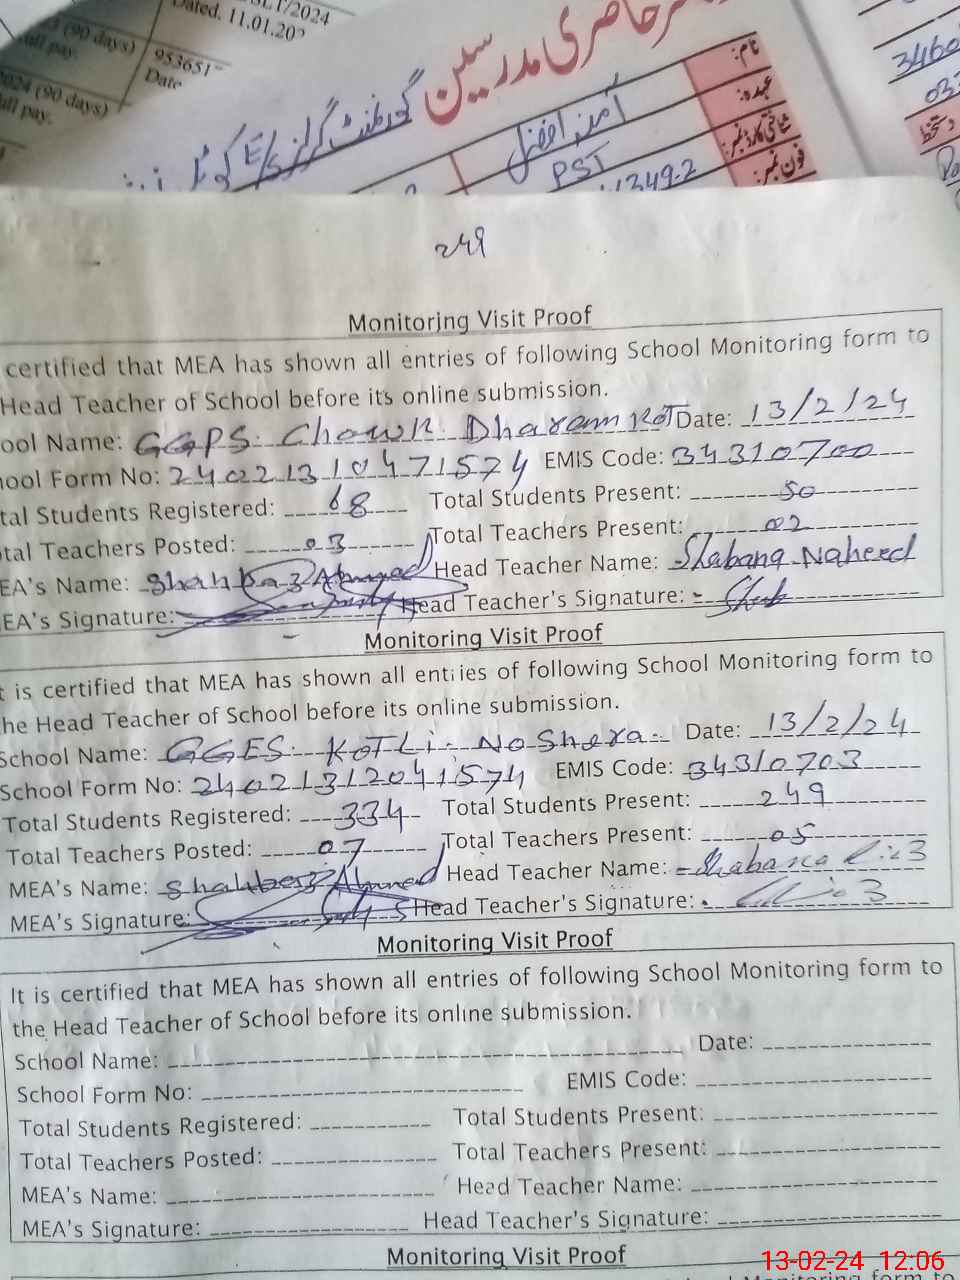 LT/2024
Dated. 11.01.202
(90 days)
full pay.
953651
Date
2024 (90 days)
full pay.
حاضری مدرسین
گورنمنٹ گرلز E/S کوٹلی
نام: آمنہ افضل
عہدہ: PST
شناختی کارڈ نمبر: 1349-2
فون نمبر:
3460
03
دستخط
249
Monitoring Visit Proof
certified that MEA has shown all entries of following School Monitoring form to
Head Teacher of School before its online submission.
ool Name: GGPS. Chowk Dharam Kot Date: 13/2/24
hool Form No: 240221310471574 EMIS Code: 34310700
tal Students Registered: 68 Total Students Present: 50
tal Teachers Posted: 03 Total Teachers Present: 02
EA's Name: Shahbaz Ahmed Head Teacher Name: Shabana Naheed
EA's Signature: Head Teacher's Signature: Shab
Monitoring Visit Proof
t is certified that MEA has shown all entries of following School Monitoring form to
he Head Teacher of School before its online submission.
School Name: GGES. KOTLi. NoShera. Date: 13/2/24
School Form No: 24021312041574 EMIS Code: 34310703
Total Students Registered: 334 Total Students Present: 249
Total Teachers Posted: 07 Total Teachers Present: 05
MEA's Name: Shahbaz Ahmed Head Teacher Name: Shabana
MEA's Signature: Head Teacher's Signature:
Monitoring Visit Proof
It is certified that MEA has shown all entries of following School Monitoring form to
the Head Teacher of School before its online submission.
School Name: Date:
School Form No: EMIS Code:
Total Students Registered: Total Students Present:
Total Teachers Posted: Total Teachers Present:
MEA's Name: Head Teacher Name:
MEA's Signature: Head Teacher's Signature:
Monitoring Visit Proof
13-02-24 12:06
Monitoring form to